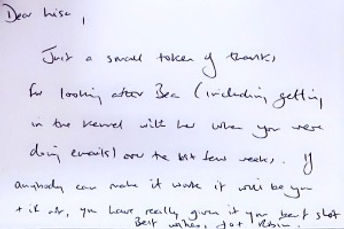 Dear Lisa,
Just a small token of thanks
for looking after Bea (including getting
in the kennel with her when you were
doing emails) over the last few weeks. If
anybody can make it work it will be you
+ if not, you have really given it your best shot
Best wishes, Jo + Robin.